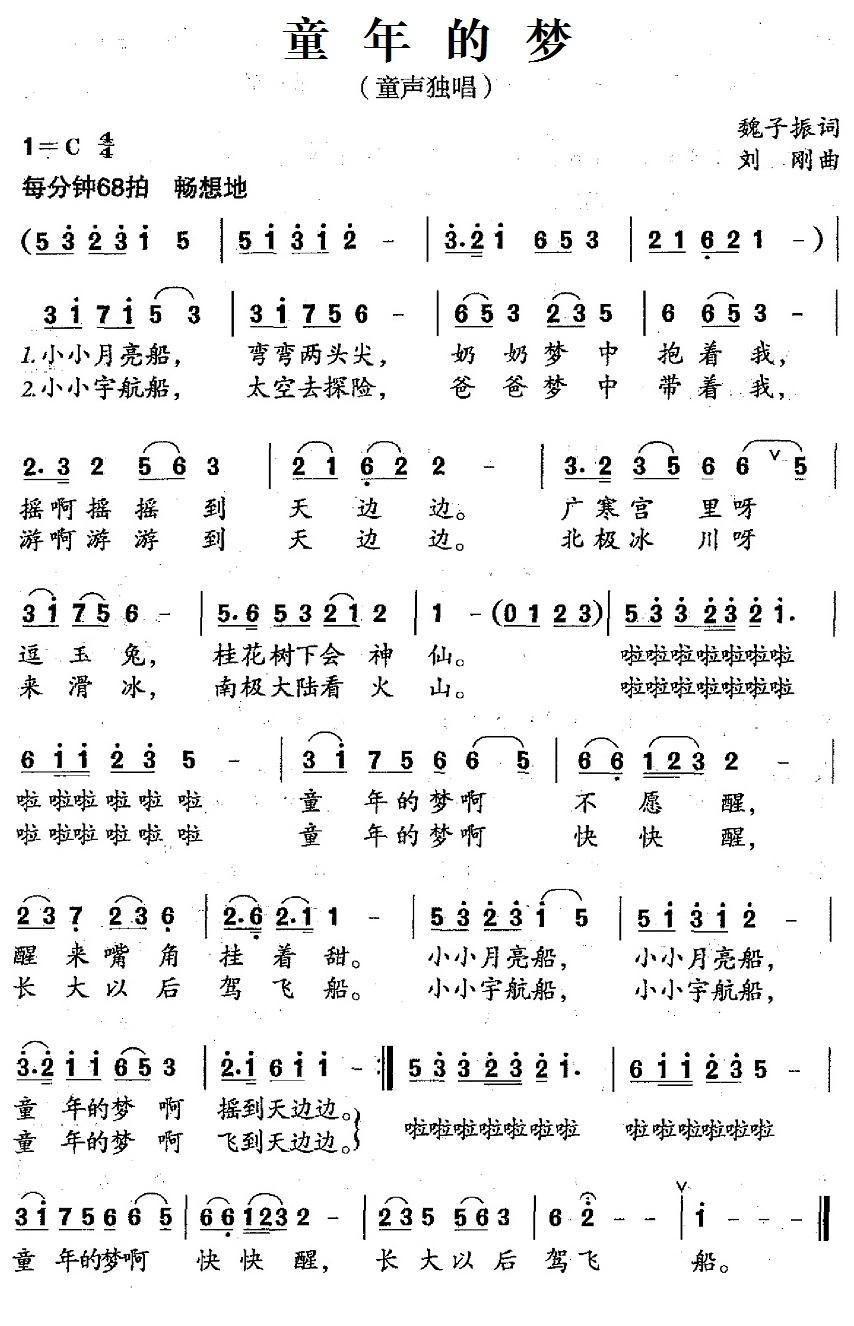 童年的梦
（童声独唱）
魏子振词
1=C 4/4
刘 刚曲
每分钟68拍 畅想地
(5 3 2 3 1 5 | 5 1 3 1 2 - | 3. 2 1 6 5 3 | 2 1 6 2 1 -) |
3 1 7 1 5 3 | 3 1 7 5 6 - | 6 5 3 2 3 5 | 6 6 5 3 - |
1.小小月亮船， 弯弯两头尖， 奶奶梦中 抱着我，
2.小小宇航船， 太空去探险， 爸爸梦中 带着我，
2. 3 2 5 6 3 | 2 1 6 2 2 - | 3. 2 3 5 6 6 ∨ 5 |
摇啊摇摇到 天边边。 广寒宫里呀
游啊游游到 天边边。 北极冰川呀
3 1 7 5 6 - | 5. 6 5 3 2 1 2 | 1 - (0 1 2 3) | 5 3 3 2 3 2 1. |
逗玉兔， 桂花树下会神仙。 啦啦啦啦啦啦啦
来滑冰， 南极大陆看火山。 啦啦啦啦啦啦啦
6 1 1 2 3 5 - | 3 1 7 5 6 6 5 | 6 6 1 2 3 2 - |
啦啦啦啦啦啦 童年的梦啊 不愿醒，
啦啦啦啦啦啦 童年的梦啊 快快醒，
2 3 7 2 3 6 | 2. 6 2. 1 1 - | 5 3 2 3 1 5 | 5 1 3 1 2 - |
醒来嘴角挂着甜。 小小月亮船， 小小月亮船，
长大以后驾飞船。 小小宇航船， 小小宇航船，
3. 2 1 1 6 5 3 | 2. 1 6 1 1 - :‖ 5 3 3 2 3 2 1. | 6 1 1 2 3 5 - |
童年的梦啊 摇到天边边。
童年的梦啊 飞到天边边。} 啦啦啦啦啦啦啦 啦啦啦啦啦啦
3 1 7 5 6 6 5 | 6 6 1 2 3 2 - | 2 3 5 5 6 3 | 6 2 - - ∨ | 1 - - ‖
童年的梦啊 快快醒， 长大以后驾飞 船。